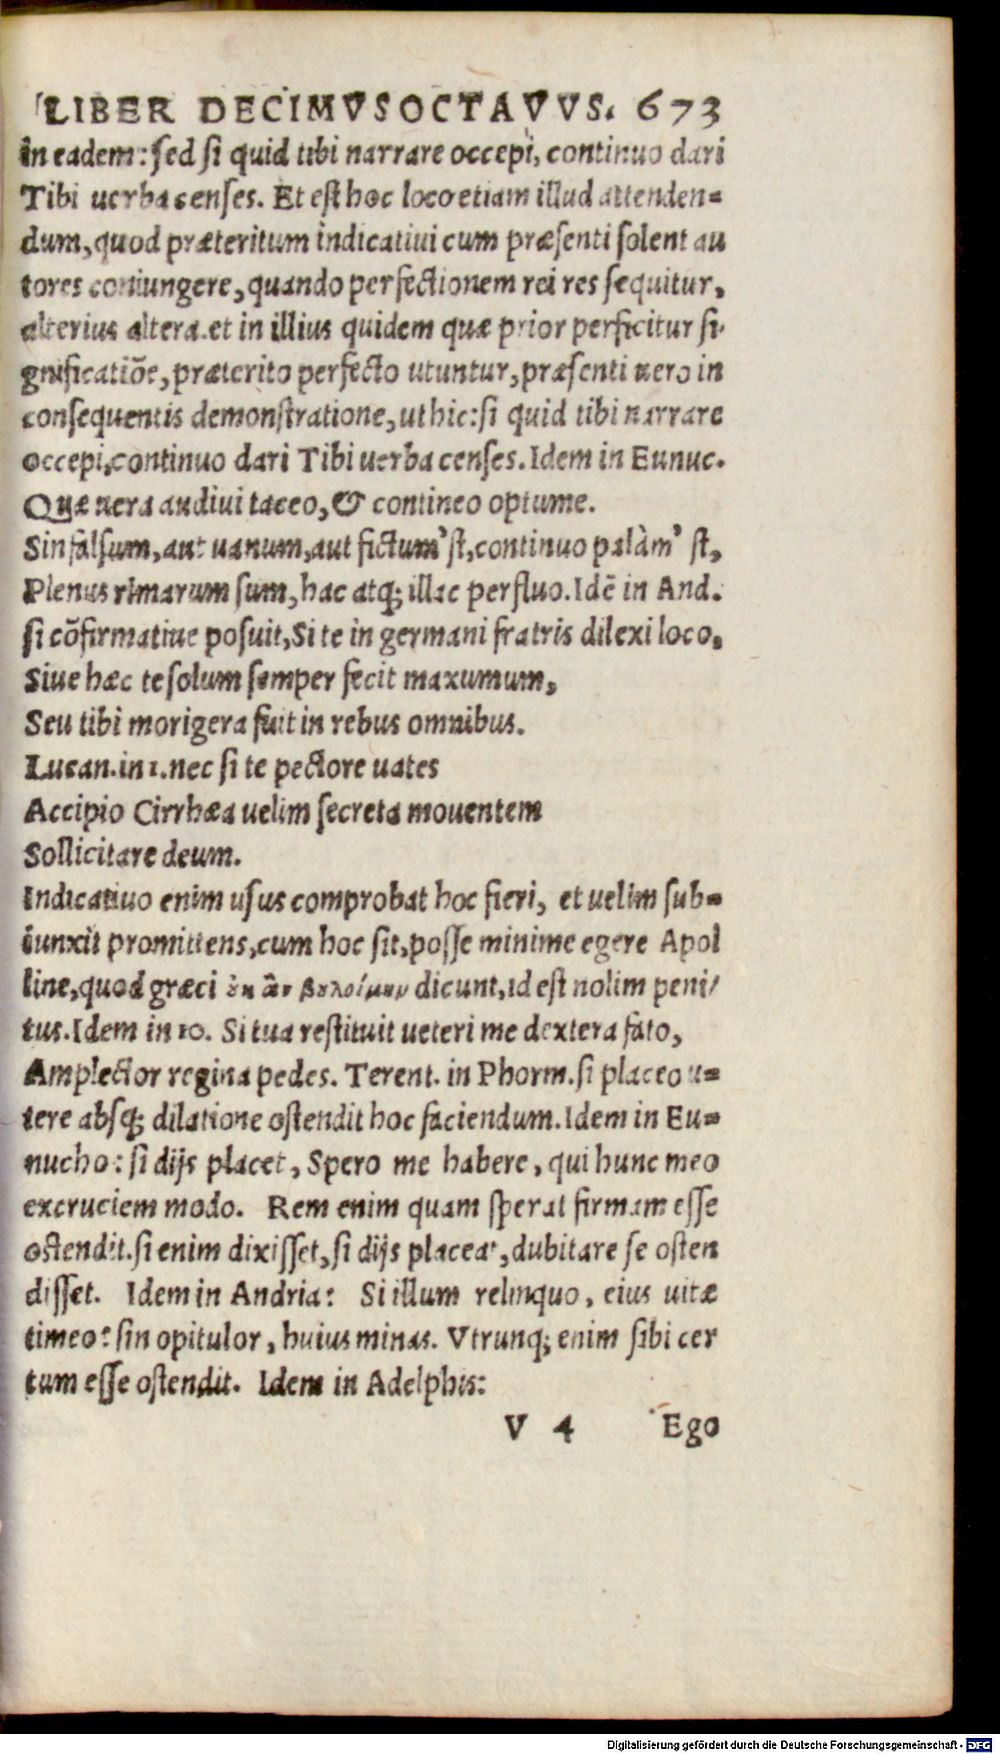 LIBER DECIMVSOCTAVVS. 673
in eadem: sed si quid tibi narrare occepi, continuo dari
Tibi uerba censes. Et est hoc loco etiam illud attenden=
dum, quod præteritum indicatiui cum præsenti solent au
tores coniungere, quando perfectionem rei res sequitur,
alterius altera. et in illius quidem quæ prior perficitur si-
gnificatiõe, præterito perfecto utuntur, præsenti uero in
consequentis demonstratione, ut hic: si quid tibi narrare
occepi, continuo dari Tibi uerba censes. Idem in Eunuc.
Quæ uera audiui taceo, & contineo optume.
Sin falsum, aut uanum, aut fictum'st, continuo palàm' st,
Plenus rimarum sum, hac atq; illac perfluo. Idē in And.
si cōfirmatiue posuit, Si te in germani fratris dilexi loco,
Siue hæc te solum semper fecit maxumum,
Seu tibi morigera fuit in rebus omnibus.
Lucan. in 1. nec si te pectore uates
Accipio Cirrhæa uelim secreta mouentem
Sollicitare deum.
Indicatiuo enim usus comprobat hoc fieri, et uelim sub=
iunxit promittens, cum hoc sit, posse minime egere Apol
line, quod græci ὀκ ἂν βουλοίμην dicunt, id est nolim peni/
tus. Idem in 10. Si tua restituit ueteri me dextera fato,
Amplector regina pedes. Terent. in Phorm. si placeo u=
tere absq; dilatione ostendit hoc faciendum. Idem in Eu=
nucho: si dijs placet, Spero me habere, qui hunc meo
excruciem modo. Rem enim quam sperat firmam esse
ostendit. si enim dixisset, si dijs placeat, dubitare se osten
disset. Idem in Andria: Si illum relinquo, eius uitæ
timeo: sin opitulor, huius minas. Vtrunq; enim sibi cer
tum esse ostendit. Idem in Adelphis:
V 4 Ego
Digitalisierung gefördert durch die Deutsche Forschungsgemeinschaft - DFG